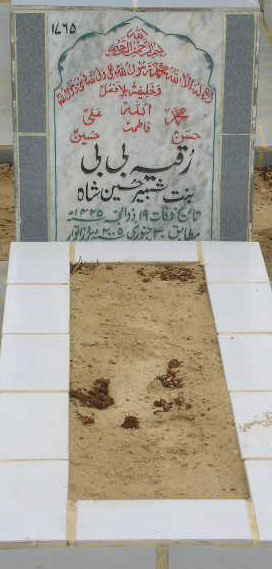 ۱۷۶۵
بسم اللہ الرحمن الرحیم
لا الہ الا اللہ محمد رسول اللہ علی ولی اللہ وصی رسول اللہ
و خلیفتہ بلا فصل
محمد اللہ علی
حسن فاطمہ حسین
رقیہ بی بی
بنت شبیر حسین شاہ
تاریخ وفات ۱۹ ذوالحجہ ۱۴۲۵ھ
مطابق ۳۰ جنوری ۲۰۰۵ء بروز اتوار